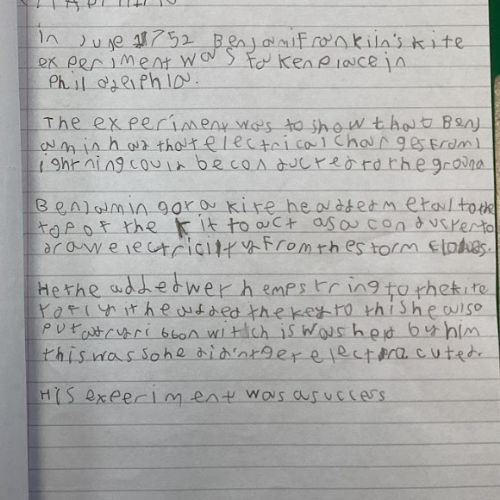 In June 1752 BenJamiFrankiin's kite
experiment was taken place in
Philadelphia.
The experiment was to show that BenJ
amin had that electrical charges from l
ightning could be conducted to the ground
BenJamin got a kite he added metal to the
top of the kit to act as a conducter to
draw electricilty from the storm clouds.
He the added wer hemp string to the kite
to fly it he added the key to this he also
put a try ribbon witch is was held by him
this was so he didn't get electracuted.
His experiment was a success